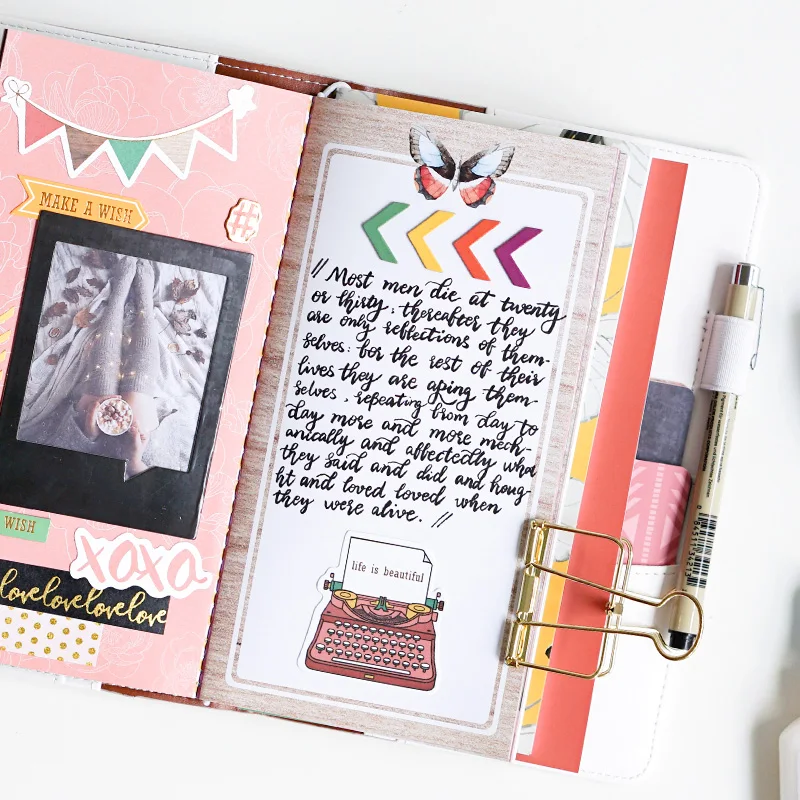 MAKE A WISH
#
WISH
xoxo
lovelovelovelove
// Most men die at twenty
or thirty; thereafter they
are only reflections of them-
selves: for the rest of their
lives they are aping them-
selves, repeating from day to
day more and more mech-
anically and affectedly what
they said and did and houg-
ht and loved loved when
they were alive. //
life is beautiful